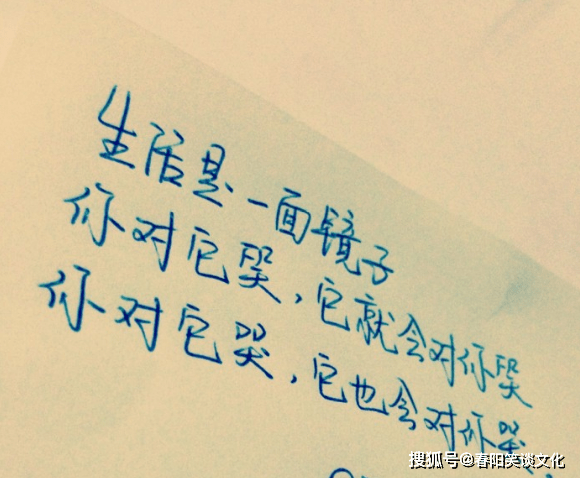 生活是一面镜子
你对它哭，它就会对你哭
你对它哭，它也会对你哭
搜狐号@春阳笑谈文化